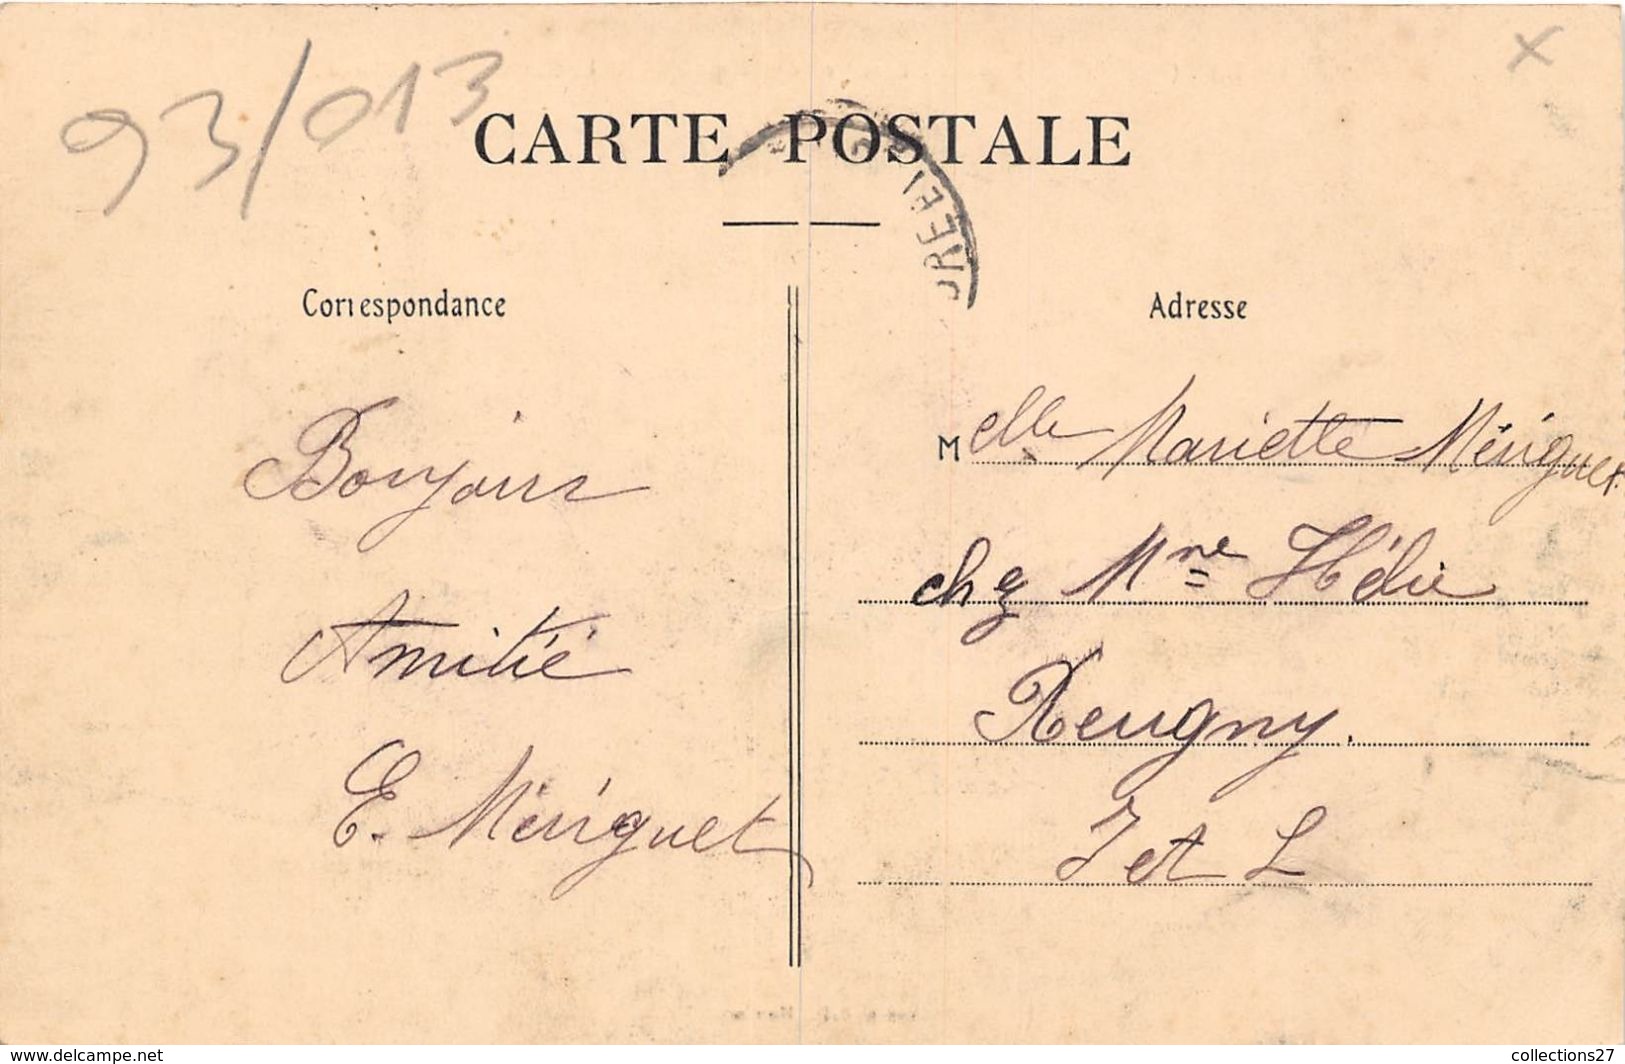 93/013
X
CARTE POSTALE
Correspondance
Adresse
Bonjour
Amitié
E. Mériguet
Melle Mariette Mériguet.
chez Mme Hélie
Reugny.
I et L
www.delcampe.net
collections27